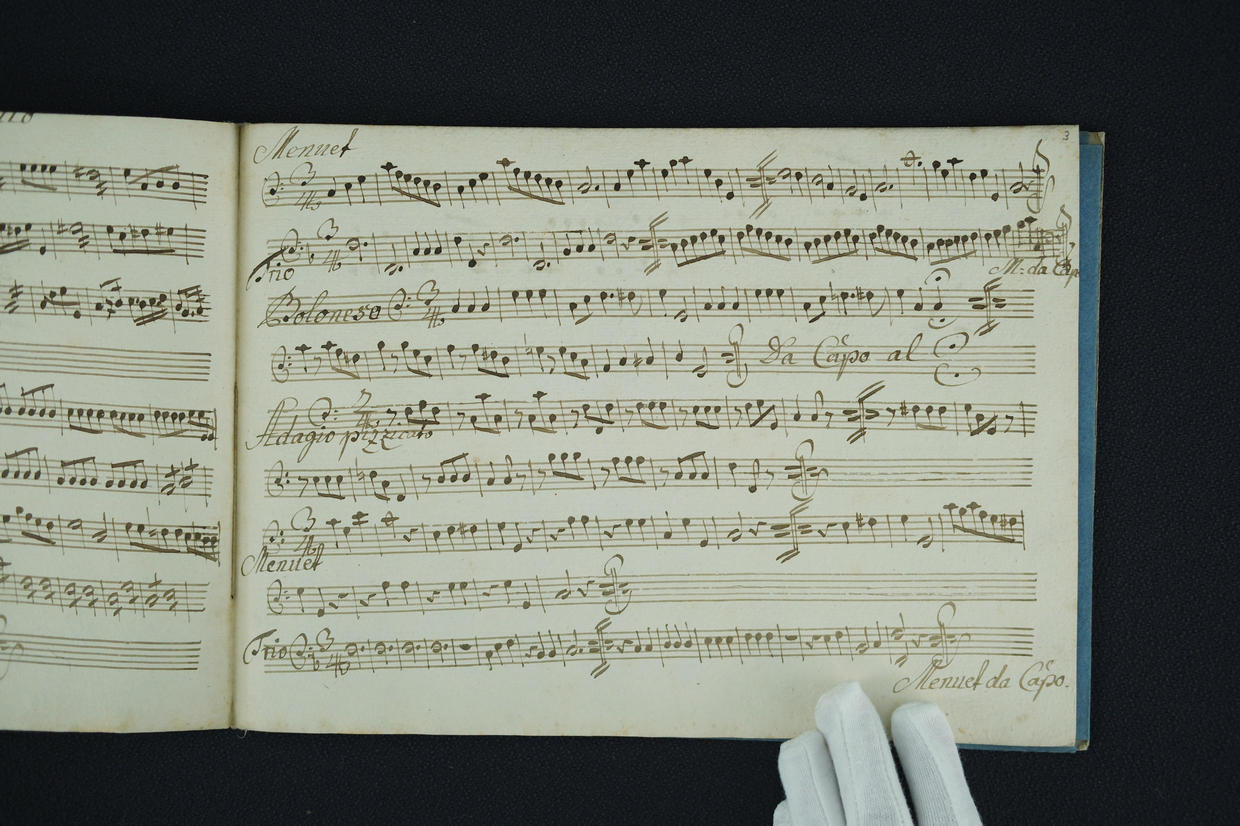 3
Menuet
3
4
Trio
3
4
M: da Cap
Polonese
3
4
Da Capo al
Adagio pizzicato
3
4
Menuet
3
4
Trio
3
4
Menuet da Capo.